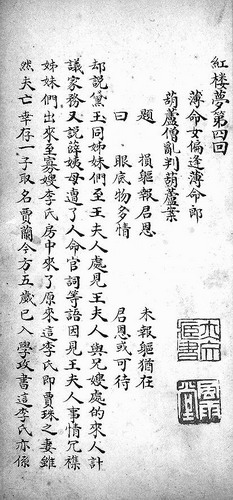 紅楼夢第四回
薄命女偏逢薄命郎
葫蘆僧亂判葫蘆案
題 捐軀報君恩 未報軀猶在
曰 眼底物多情 君恩或可待
却說黛玉同姊妹們至王夫人處見王夫人與兄嫂處的來人計
議家務又說薛姨母遭了人命官詞等語因見王夫人事情冗襍
姊妹們出來至寡嫂李氏房中來了原來這李氏即賈珠之妻雖
然夫亡幸存一子取名賈蘭今方五歲已入學攻書這李氏亦係